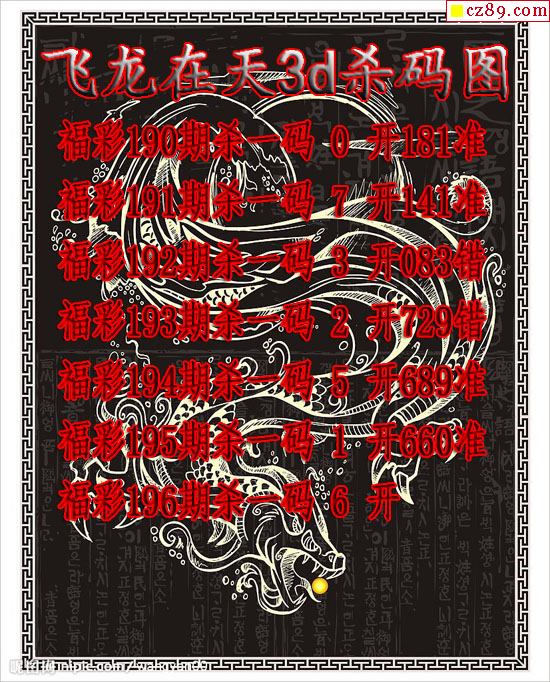 cz89.com
飞龙在天3d杀码图
福彩190期杀一码 0 开181准
福彩191期杀一码 7 开141准
福彩192期杀一码 3 开083错
福彩193期杀一码 2 开729错
福彩194期杀一码 5 开689准
福彩195期杀一码 1 开660准
福彩196期杀一码 6 开